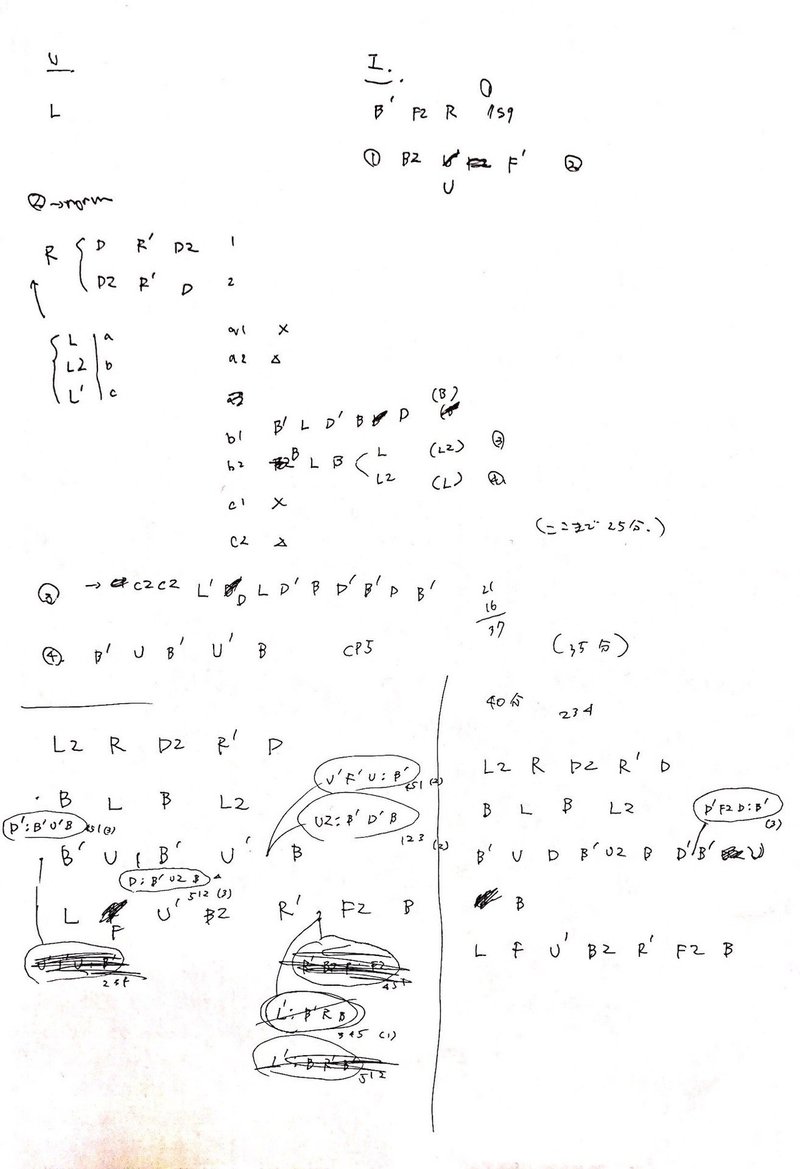 U
L
I.
B' F2 R
① B2 F' ②
U
② → norm
R D R' D2 1
D2 R' D 2
L a
L2 b
L' c
a1 ×
a2 △
b1 B' L D' B D (B)
b2 B L B L (L2) ③
L2 (L) ④
c1 ×
c2 △
(ここまで 25分.)
③ → C2 C2 L' D L D' B D' B' D B'
21
16
37
④ B' U B' U' B CP5
(35分)
L2 R D2 R' D
B L B L2
U' F' U : B'
451 (2)
D' : B' U' B
U2 : B' D' B
123 (2)
B' U B' U' B
D : B' U2 B
512 (3)
L F U' B2 R' F2 B
L' : B' R B
345 (1)
512
40分 234
L2 R D2 R' D
B L B L2
D' F2 D : B'
(3)
B' U D B' U2 B D' B' U
B
L F U' B2 R' F2 B